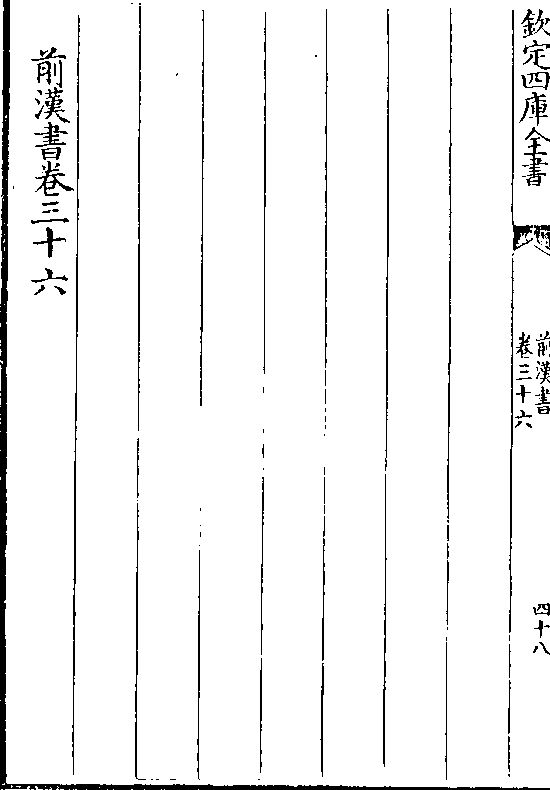 欽定四庫全書
前漢書
卷三十六
四十八
前漢書卷三十六